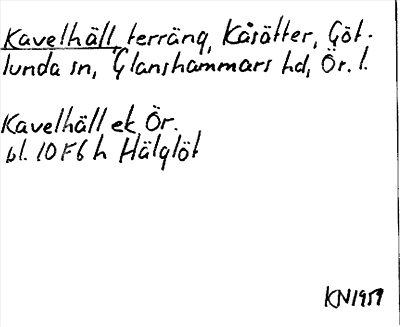 Kavelhäll, terräng, Kåsätter, Göt-
lunda sn, Glanshammars hd, Ör. l.
Kavelhäll ek Ör.
bl. 10F6h Hälglöt
KN1959